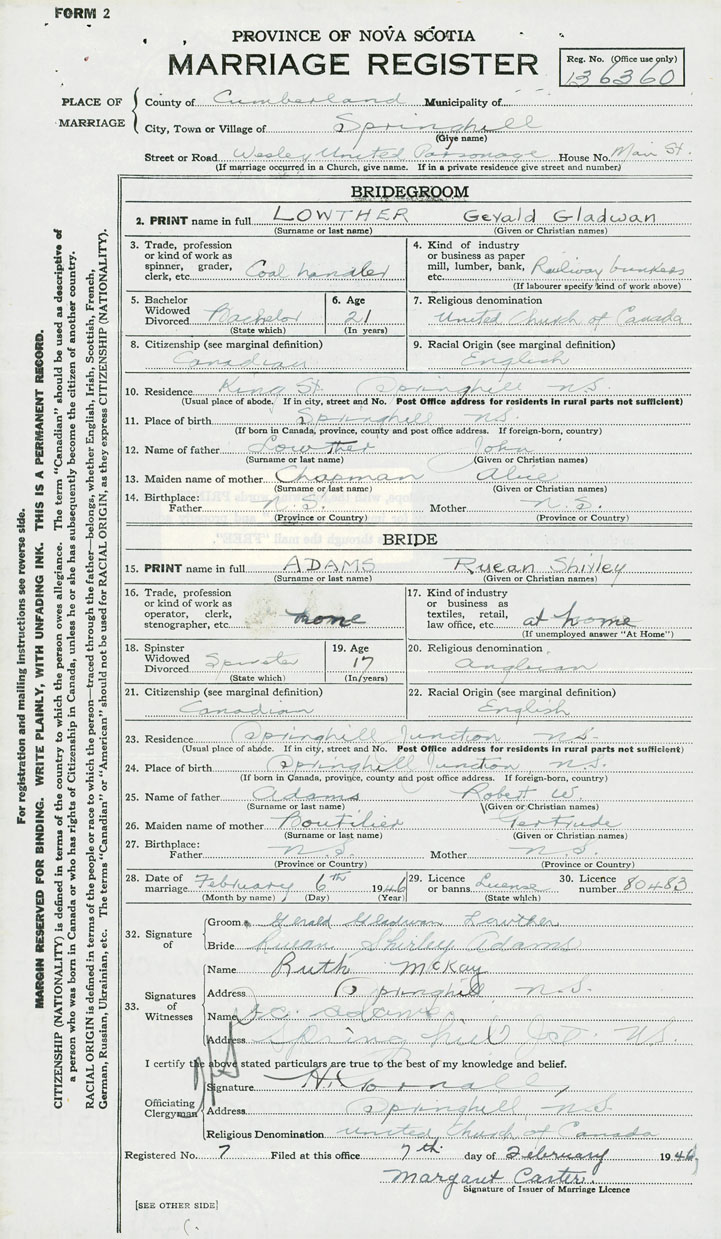 FORM 2
PROVINCE OF NOVA SCOTIA
MARRIAGE REGISTER
Reg. No. (Office use only)
136360
PLACE OF MARRIAGE
County of Cumberland Municipality of
City, Town or Village of Springhill
(Give name)
Street or Road Wesley United Parsonage House No. Main St.
(If marriage occurred in a Church, give name. If in a private residence give street and number)
BRIDEGROOM
2. PRINT name in full LOWTHER Gerald Gladwan
(Surname or last name) (Given or Christian names)
3. Trade, profession or kind of work as spinner, grader, clerk, etc. Coal handler
4. Kind of industry or business as paper mill, lumber, bank, etc. Railway bunkers
(If labourer specify kind of work above)
5. Bachelor Widowed Divorced Bachelor
(State which)
6. Age 21
(In years)
7. Religious denomination
United Church of Canada
8. Citizenship (see marginal definition)
Canadian
9. Racial Origin (see marginal definition)
English
10. Residence King St. Springhill N.S.
(Usual place of abode. If in city, street and No. Post Office address for residents in rural parts not sufficient)
11. Place of birth Springhill N.S.
(If born in Canada, province, county and post office address. If foreign-born, country)
12. Name of father Lowther John
(Surname or last name) (Given or Christian names)
13. Maiden name of mother Chapman Alice
(Surname or last name) (Given or Christian names)
14. Birthplace:
Father N.S. Mother N.S.
(Province or Country) (Province or Country)
BRIDE
15. PRINT name in full ADAMS Ruean Shirley
(Surname or last name) (Given or Christian names)
16. Trade, profession or kind of work as operator, clerk, stenographer, etc. none
17. Kind of industry or business as textiles, retail, law office, etc. at home
(If unemployed answer "At Home")
18. Spinster Widowed Divorced Spinster
(State which)
19. Age 17
(In years)
20. Religious denomination
Anglican
21. Citizenship (see marginal definition)
Canadian
22. Racial Origin (see marginal definition)
English
23. Residence Springhill Junction N.S.
(Usual place of abode. If in city, street and No. Post Office address for residents in rural parts not sufficient)
24. Place of birth Springhill Junction N.S.
(If born in Canada, province, county and post office address. If foreign-born, country)
25. Name of father Adams Robert W.
(Surname or last name) (Given or Christian names)
26. Maiden name of mother Boutilier Gertrude
(Surname or last name) (Given or Christian names)
27. Birthplace:
Father N.S. Mother N.S.
(Province or Country) (Province or Country)
28. Date of marriage February 6th 1946
(Month by name) (Day) (Year)
29. Licence or banns License
(State which)
30. Licence number 80483
32. Signature of
Groom Gerald Gladwan Lowther
Bride Ruean Shirley Adams
33. Signatures of Witnesses
Name Ruth McKay
Address Springhill N.S.
Name Adams
Address Springhill Jct. N.S.
I certify the above stated particulars are true to the best of my knowledge and belief.
Officiating Clergyman
Signature
Address Springhill N.S.
Religious Denomination United Church of Canada
Registered No. 7 Filed at this office 7th day of February 1946
Margaret Carter
Signature of Issuer of Marriage Licence
[SEE OTHER SIDE]
For registration and mailing instructions see reverse side.
MARGIN RESERVED FOR BINDING. WRITE PLAINLY, WITH UNFADING INK. THIS IS A PERMANENT RECORD.
CITIZENSHIP (NATIONALITY) is defined in terms of the country to which the person owes allegiance. The term "Canadian" should be used as descriptive of
a person who was born in Canada or who has rights of Citizenship in Canada, unless he or she has subsequently become the citizen of another country.
RACIAL ORIGIN is defined in terms of the people or race to which the person—traced through the father—belongs, whether English, Irish, Scottish, French,
German, Russian, Ukrainian, etc. The terms "Canadian" or "American" should not be used for RACIAL ORIGIN, as they express CITIZENSHIP (NATIONALITY).